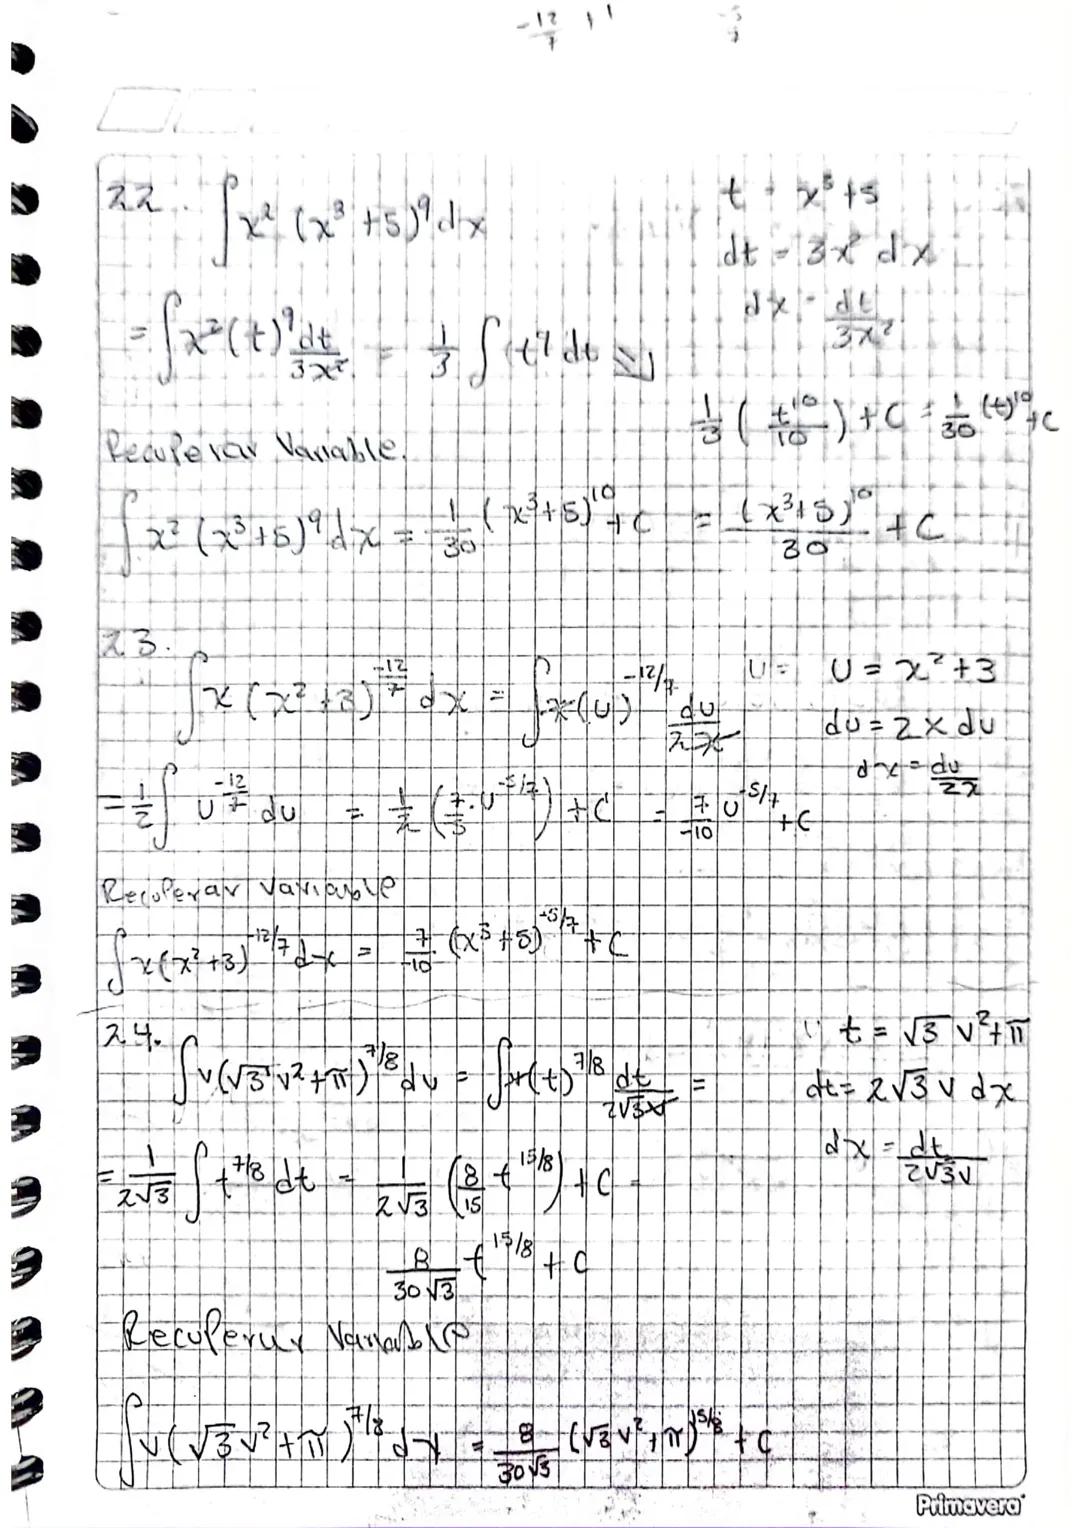 -12/7 + 1
22. ∫x² (x³ +5)⁹ dx
t = x³ +5
dt = 3x² dx
dx = dt/3x²
= ∫x²(t)⁹ dt/3x² = 1/3 ∫ t⁹ dt
1/3 ( t¹⁰/10 ) + C = 1/30 (t)¹⁰ + C
Recuperar Variable.
∫ x² (x³+5)⁹ dx = 1/30 (x³+5)¹⁰ + C = (x³+5)¹⁰/30 + C
23.
∫x (x² +3)^(-12/7) dx = ∫x(u)^(-12/7) du/2x
U = U = x² +3
du = 2x du
dx = du/2x
= 1/2 ∫ u^(-12/7) du = 1/2 (7/5 · u^(-5/7)) + C = 7/-10 u^(-5/7) + C
Recuperar variable
∫ x(x² +3)^(-12/7) dx = 7/-10 (x³ +5)^(-5/7) + C
24.
∫v(√3 v² +π)^(7/8) dv = ∫v(t)^(7/8) dt/2√3v =
t = √3 v² + π
dt = 2√3 v dx
dx = dt/2√3v
= 1/2√3 ∫ t^(7/8) dt = 1/2√3 (8/15 t^(15/8)) + C =
8/30√3 t^(15/8) + C
Recuperar Variable
∫v(√3 v² + π)^(7/8) dx = 8/30√3 (√3 v² + π)^(15/8) + C
Primavera